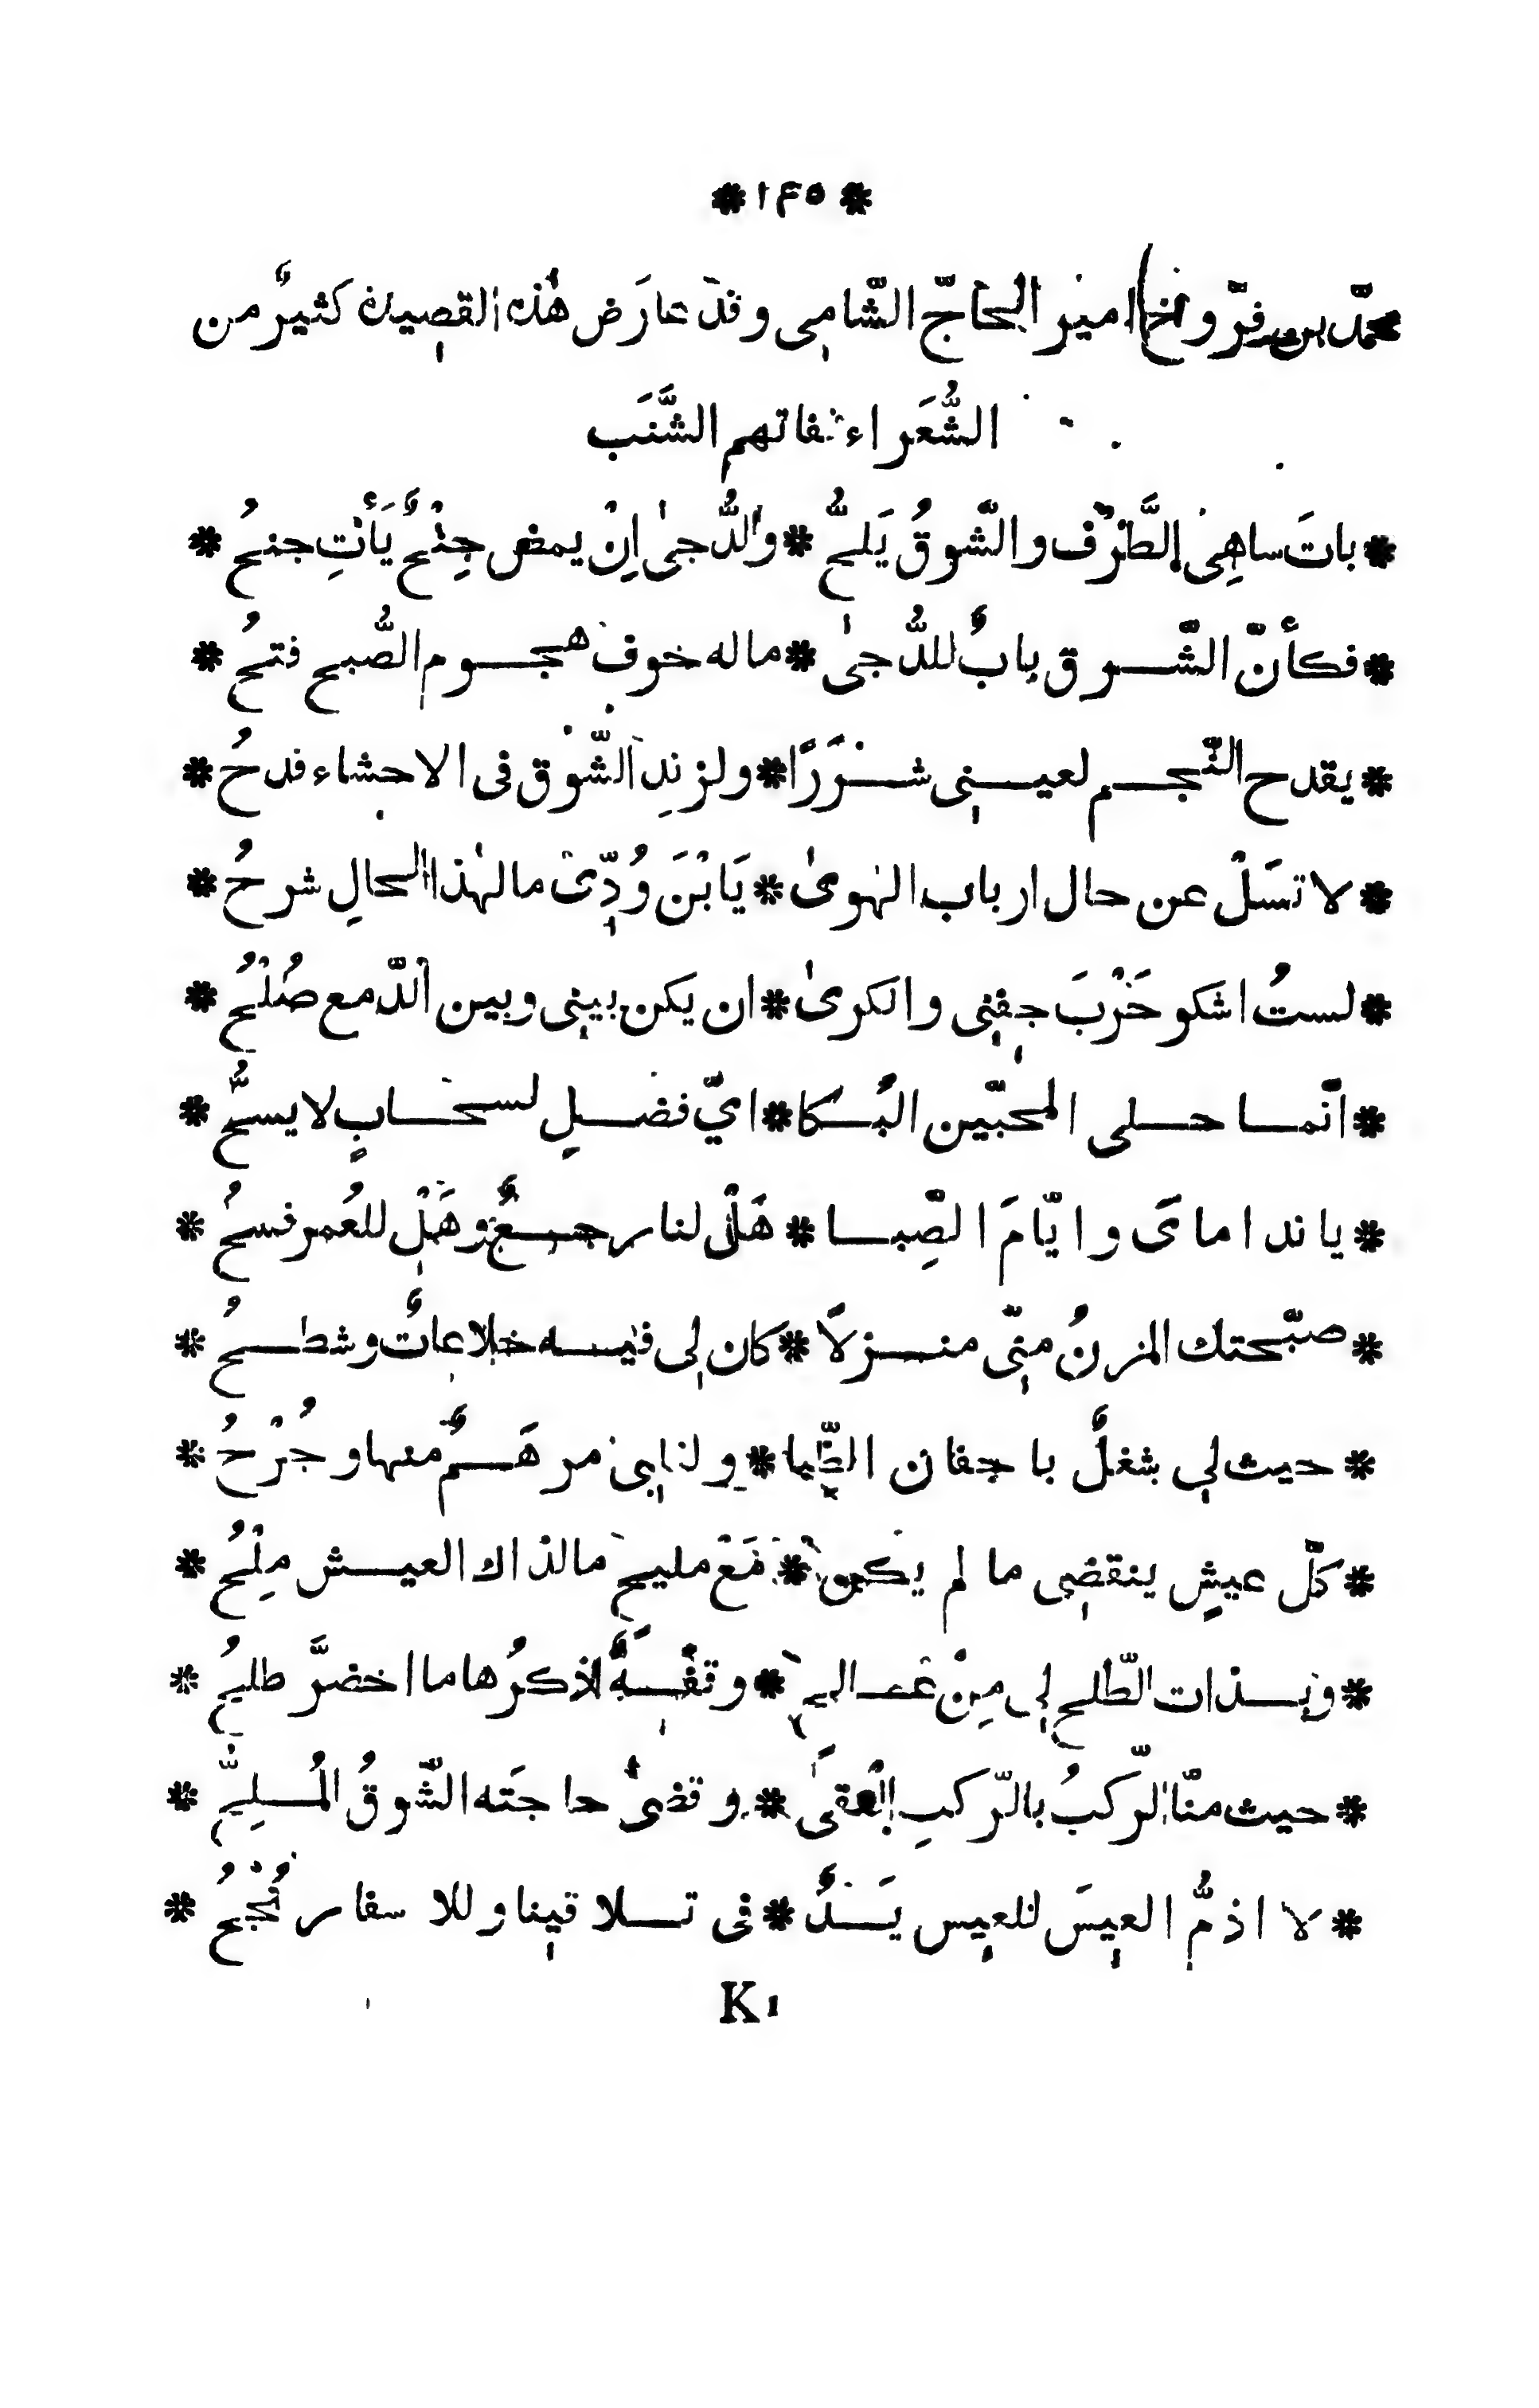 * ١٤٥ *
محمّد بن فرّوخ امير الحاجّ الشّامي وقد عارَض هٰذه القصيدة كثيرٌ من
الشُّعَراء ففاتهم الشَّنَب
* باتَ ساهِى الطَّرْف والشّوقُ يَلحُّ * والدُّجىٰ اِنْ يمض جِنْحٌ يَأتِ جنحُ *
* فكأنّ الشّرق بابٌ للدُّجىٰ * ماله خوف هجوم الصُّبح فتحُ *
* يقدح النّجم لعينى شَرَرًا * ولزندِ الشّوْق فى الاحشاء قدحُ *
* لا تسَلْ عن حال ارباب الهوىٰ * يَابْنَ وُدِّى ما لهٰذا الحالِ شرحُ *
* لستُ اشكو حَرْبَ جفنى والكرىٰ * ان يكن بينى وبين الدّمع صُلْحُ *
* انّما حلى المحبّين البُكا * ايّ فضلِ لسحابٍ لا يسحُّ *
* يا نداماىَ وايّامَ الصِّبا * هَلْ لنا رجعٌ وهَلْ للعُمر فسحُ *
* صبّحتك المزنُ منّى منزلاً * كان لى فيه خلاعاتٌ وشطحُ *
* حيث لى شغلٌ باجفان الظِّبا * ولنابى مرهَمٌ منها وجُرْحُ *
* كلّ عيشٍ ينقضى ما لم يكن * مَعْ مليحٍ ما لذاك العيش مِلْحُ *
* وبذات الطّلح لى مِنْ عالجٍ * وقفَةٌ اذكرُها ما اخضرَّ طلحُ *
* حيث منّا الركبُ بالرّكبِ التقىٰ * وقضىٰ حاجَته الشّوقُ المُلِحُّ *
* لا اذمُّ العيسَ للعيس يَدٌ * فى تلاقينا وللاسفار نُجْحُ *
K 1